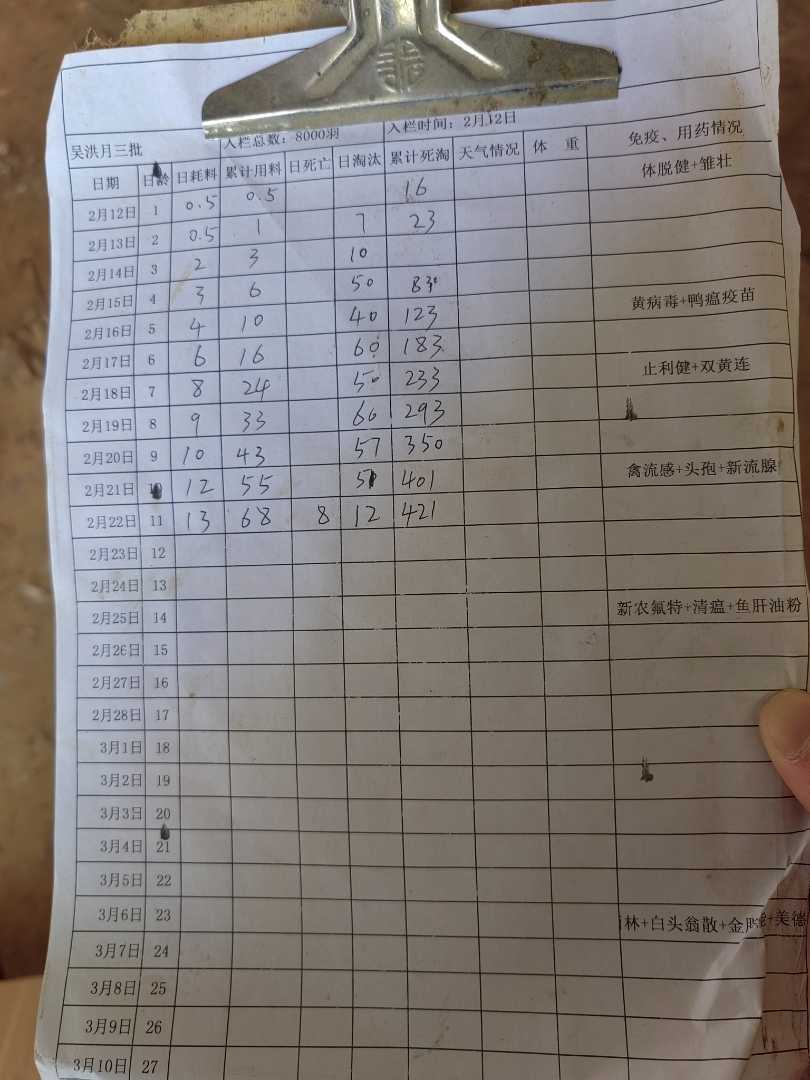 吴洪月三批 入栏总数：8000羽 入栏时间：2月12日
日期 日龄 日耗料 累计用料 日死亡 日淘汰 累计死淘 天气情况 体 重 免疫、用药情况
2月12日 1 0.5 0.5 16 体脱健+雏壮
2月13日 2 0.5 1 7 23
2月14日 3 2 3 10
2月15日 4 3 6 50 83
2月16日 5 4 10 40 123 黄病毒+鸭瘟疫苗
2月17日 6 6 16 60 183
2月18日 7 8 24 50 233 止利健+双黄连
2月19日 8 9 33 60 293
2月20日 9 10 43 57 350
2月21日 10 12 55 51 401 禽流感+头孢+新流腺
2月22日 11 13 68 8 12 421
2月23日 12
2月24日 13
2月25日 14 新农氟特+清瘟+鱼肝油粉
2月26日 15
2月27日 16
2月28日 17
3月1日 18
3月2日 19
3月3日 20
3月4日 21
3月5日 22
3月6日 23 林+白头翁散+金 +美德
3月7日 24
3月8日 25
3月9日 26
3月10日 27